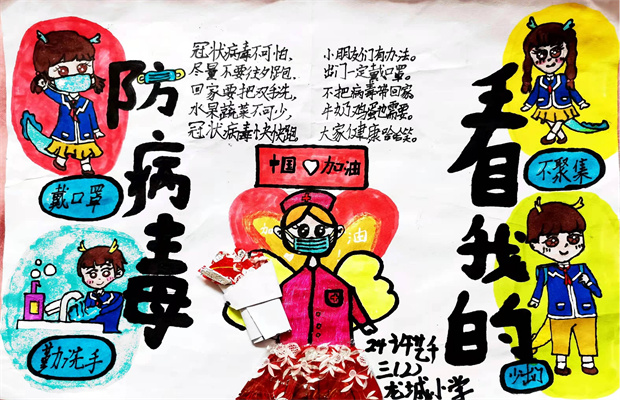 防病毒
看我的
冠状病毒不可怕,
尽量不要往外跑,
回家要把双手洗,
水果蔬菜不可少,
冠状病毒快快跑
小朋友们有办法。
出门一定戴口罩。
不把病毒带回家
牛奶鸡蛋也需要。
大家健康哈哈笑。
中国加油
加油
戴口罩
勤洗手
不聚集
少出门
三(2)
龙城小学